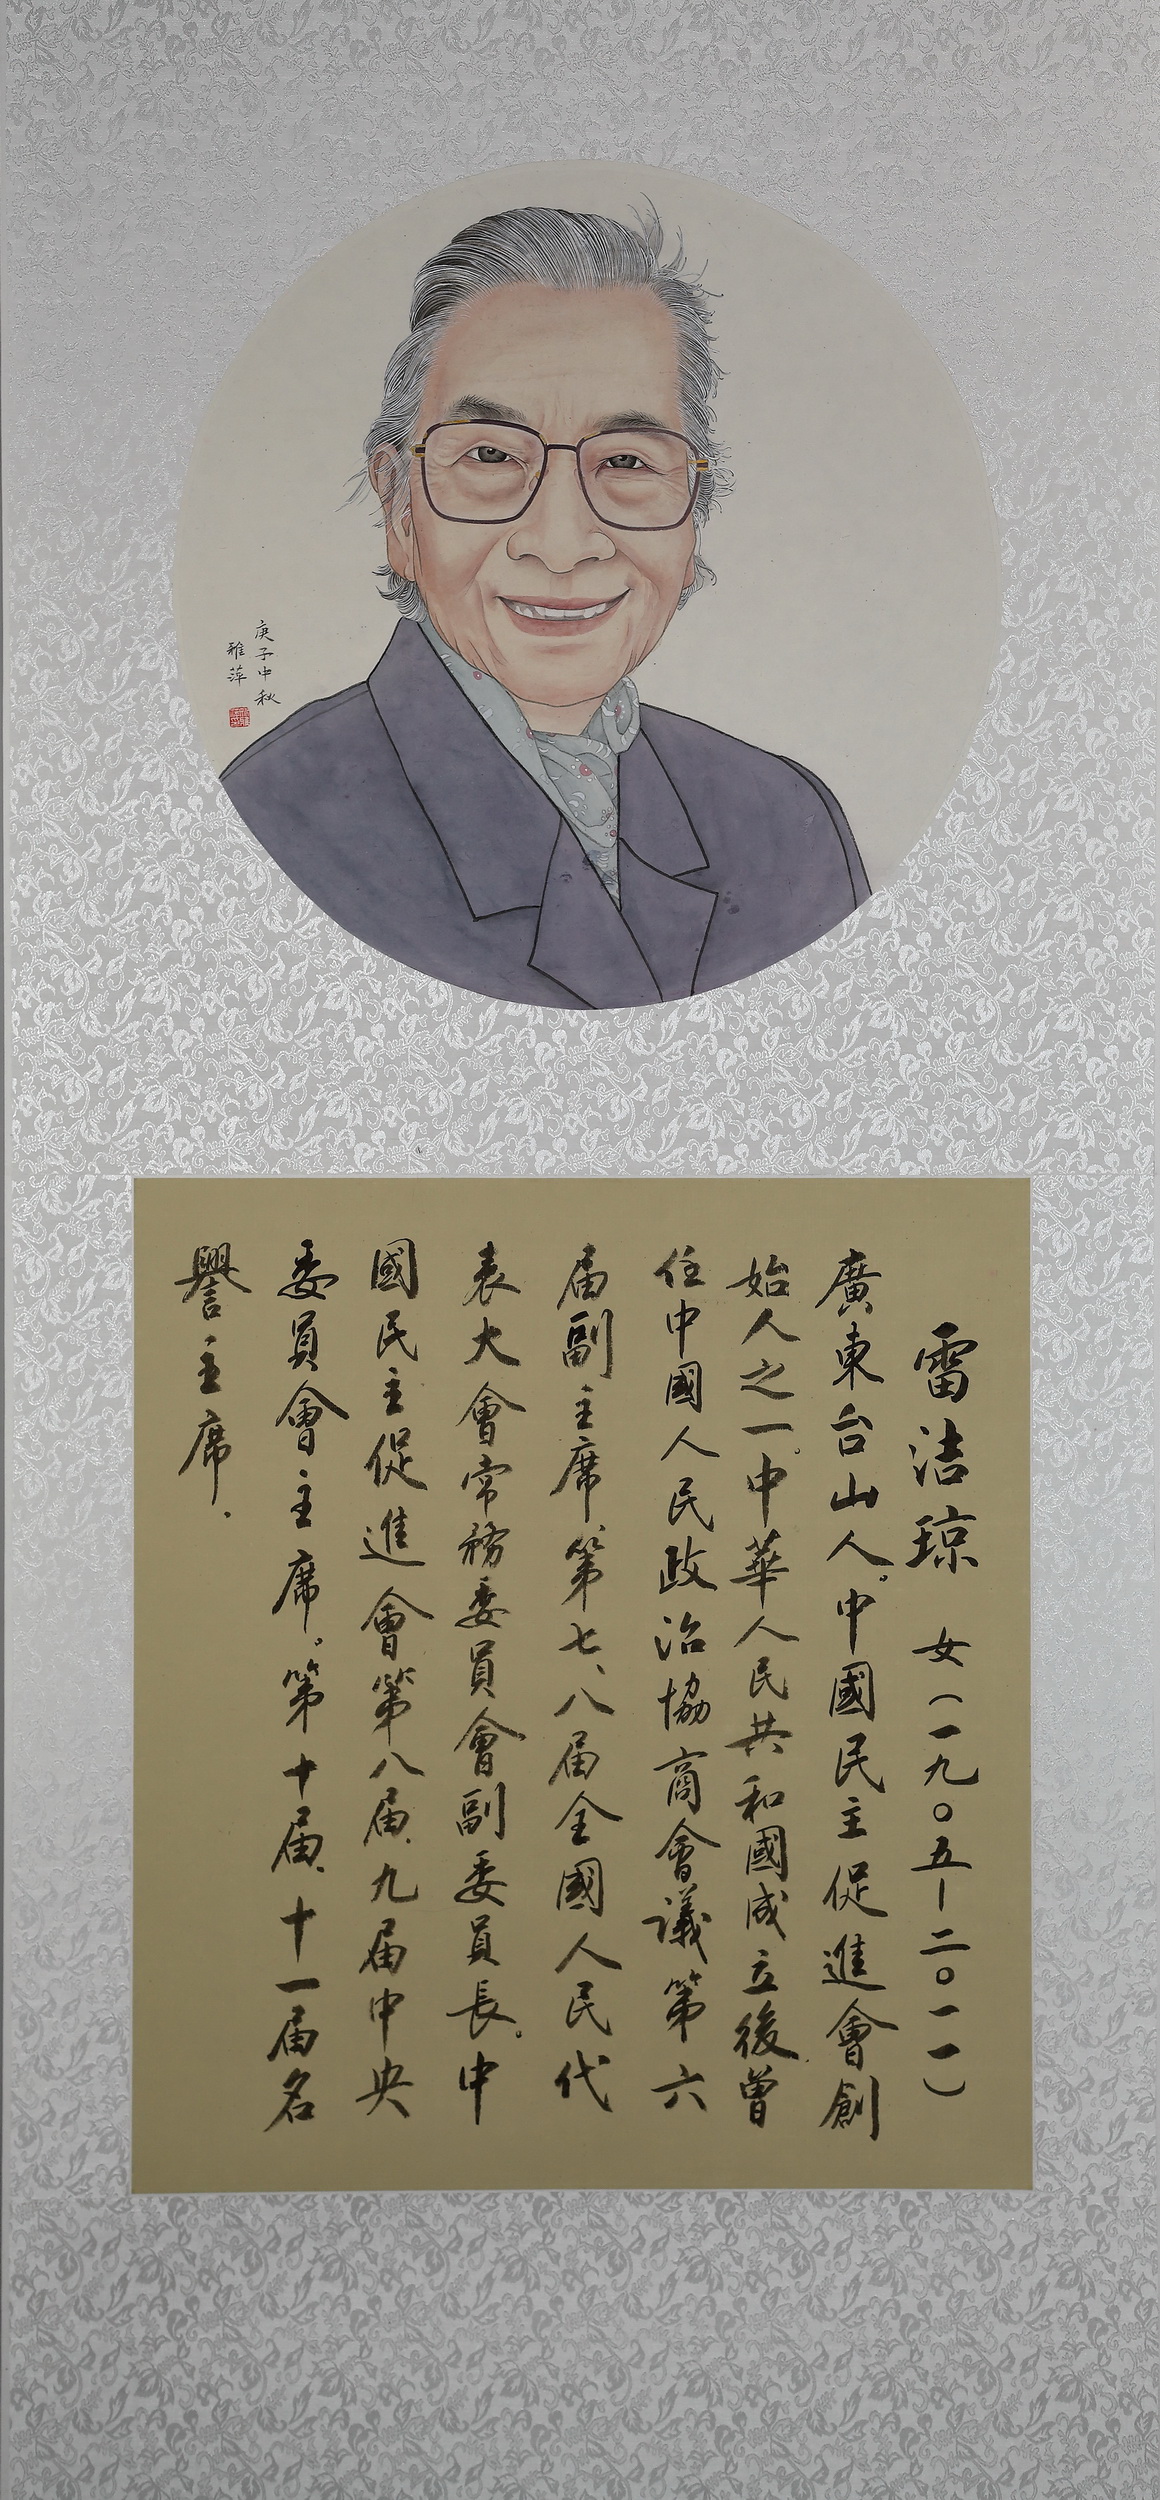 庚子中秋
雅萍
雷洁琼 女（一九〇五—二〇一一）
廣東台山人。中國民主促進會創
始人之一。中華人民共和國成立後，曾
任中國人民政治協商會議第六
届副主席，第七、八届全國人民代
表大會常務委員會副委員長。中
國民主促進會第八届、九届中央
委員會主席。第十届、十一届名
譽主席.